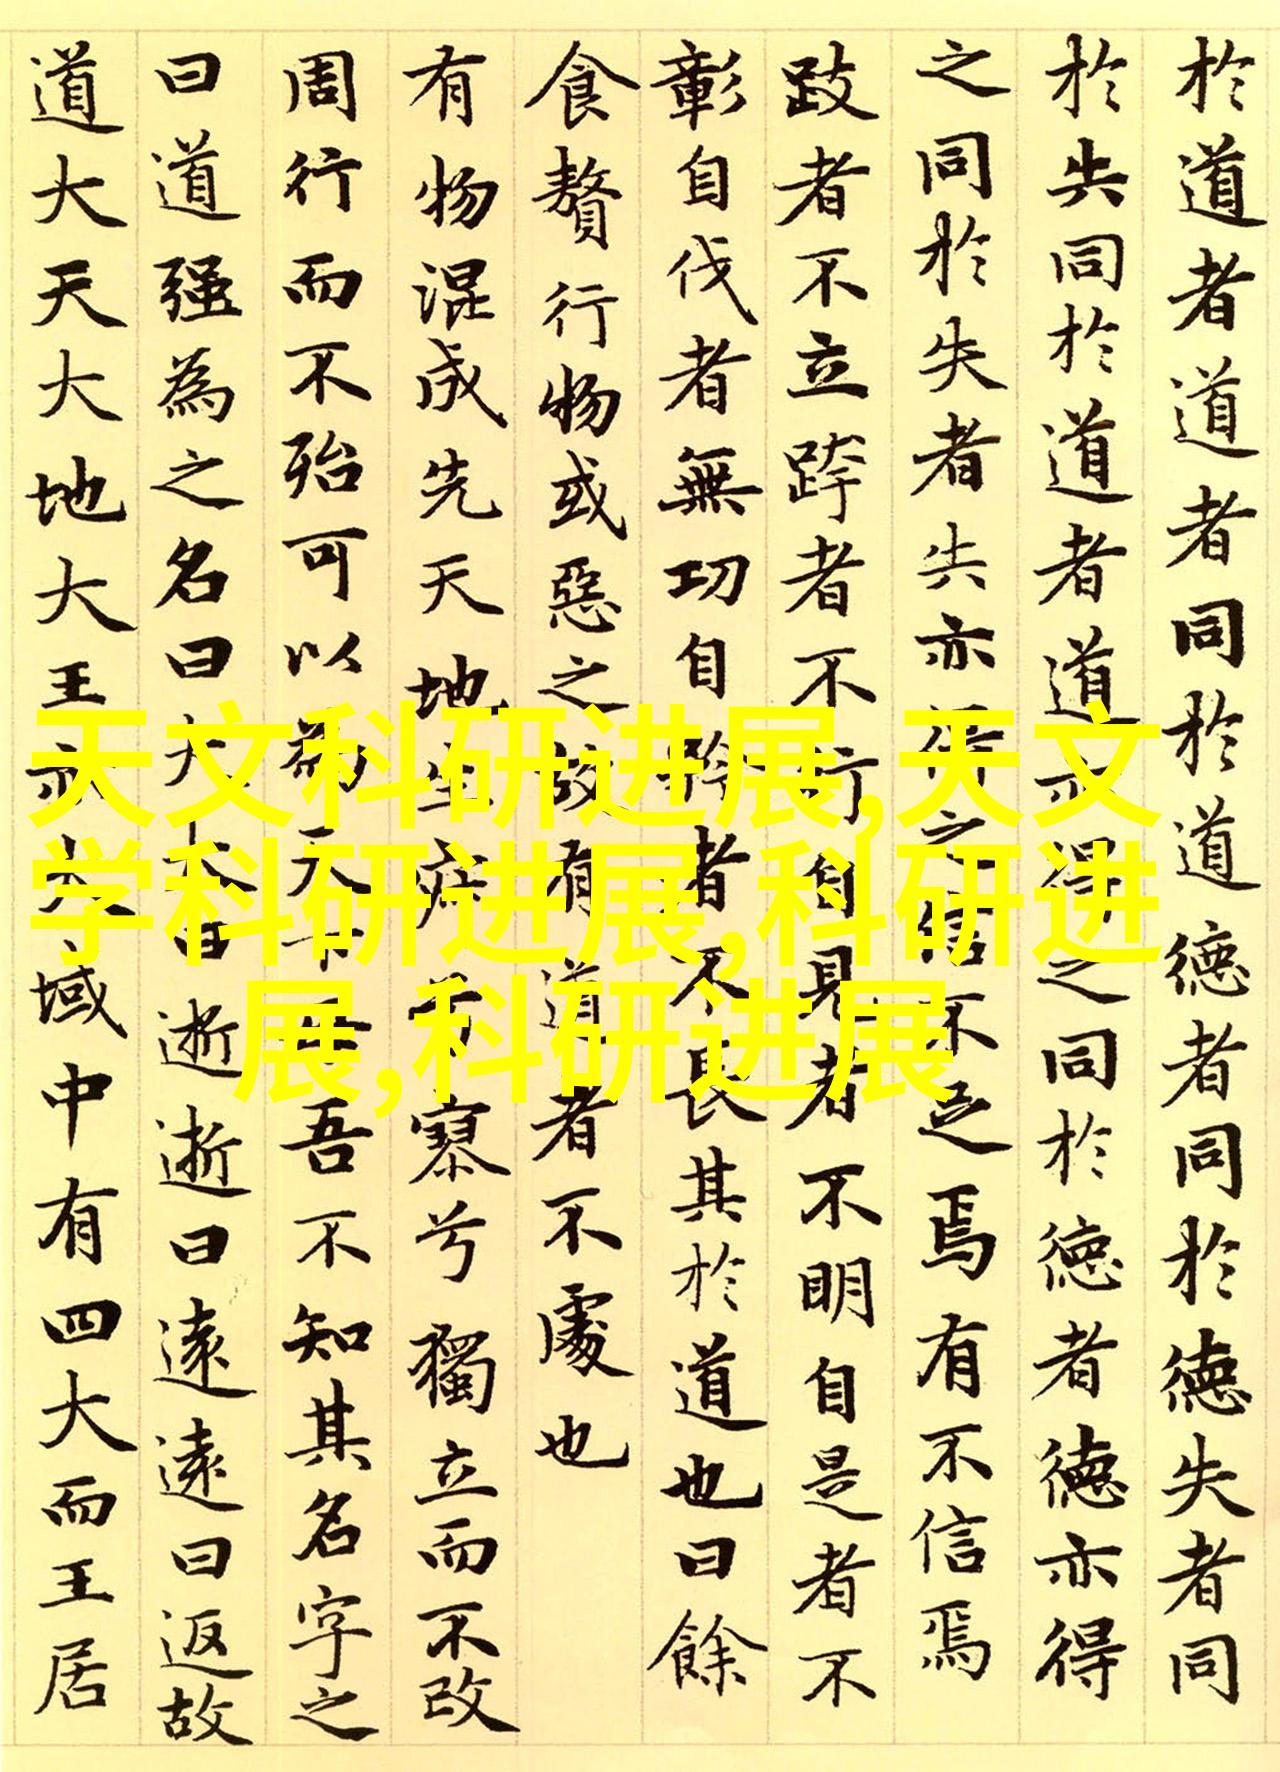 於道者道者同於道德者同於德失者同
於失同於道者道亦得之同於德者德亦得
之同於失者失亦得之信不足焉有不信焉
跂者不立跨者不行自見者不明自是者不
彰自伐者無功自矜者不長其於道也曰餘
食贅行物或惡之故有道者不處也
有物混成先天地生寂兮寥兮獨立而不改
周行而不殆可以為天下母吾不知其名字之
曰道强為之名曰大大曰逝逝曰遠遠曰返故
道大天大地大王亦大域中有四大而王居
天文科研进展,天文
学科研进展,科研进
展,科研进展